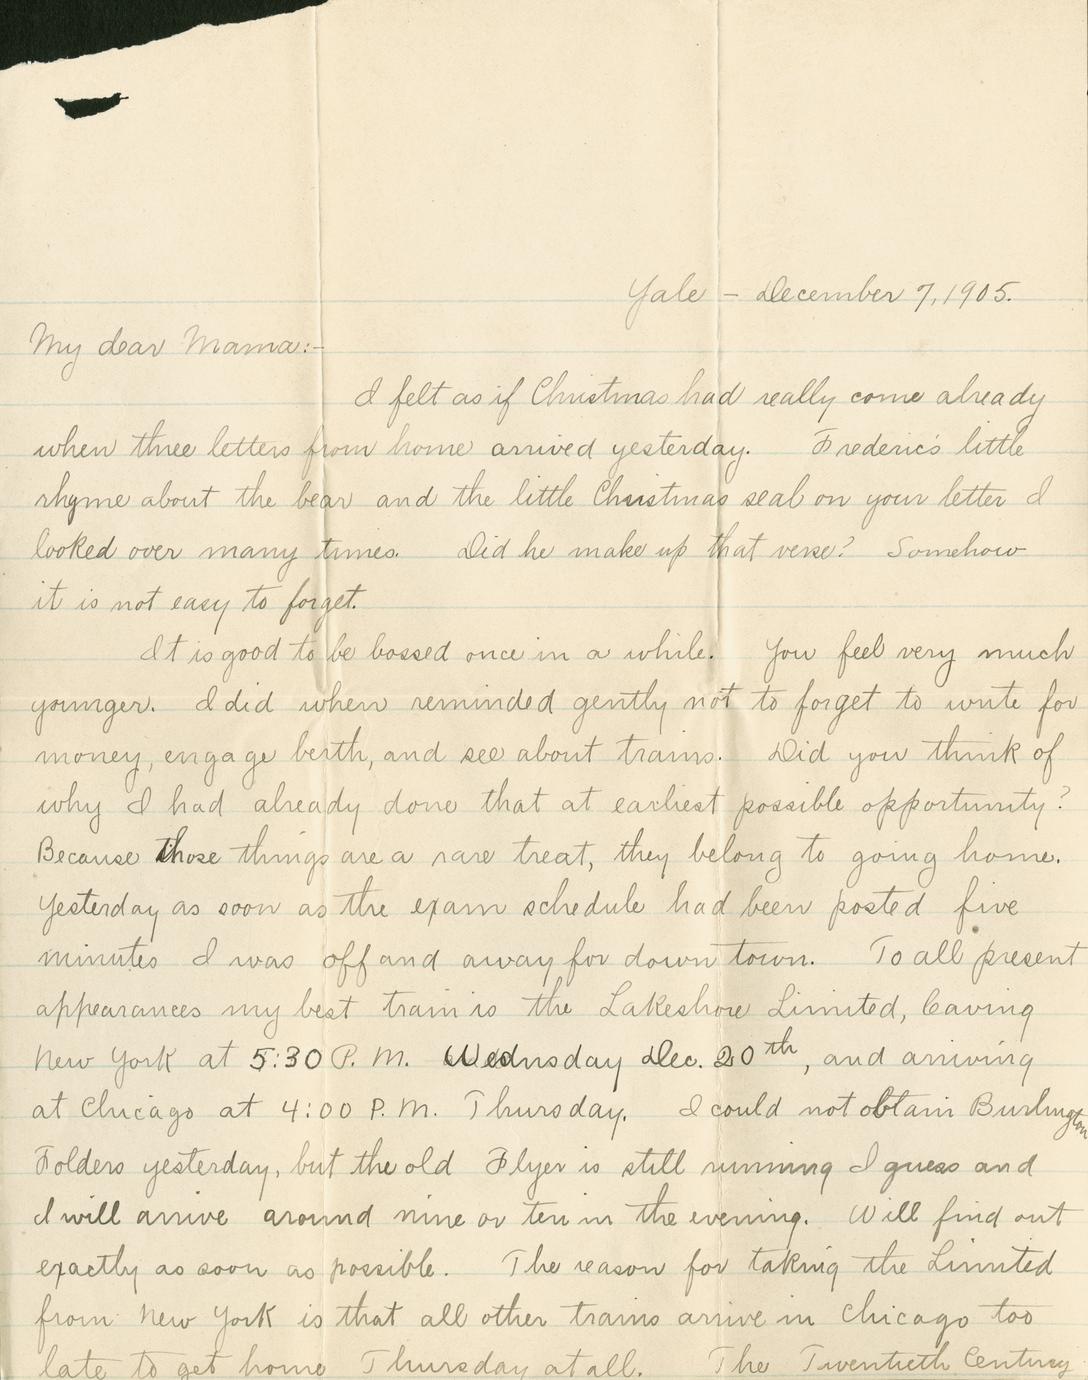 Yale – December 7, 1905.
My dear Mama:–
I felt as if Christmas had really come already
when three letters from home arrived yesterday. Frederic's little
rhyme about the bear and the little Christmas seal on your letter I
looked over many times. Did he make up that verse? Somehow
it is not easy to forget.
It is good to be bossed once in a while. You feel very much
younger. I did when reminded gently not to forget to write for
money, engage berth, and see about trains. Did you think of
why I had already done that at earliest possible opportunity?
Because those things are a rare treat, they belong to going home.
Yesterday as soon as the exam schedule had been posted five
minutes I was off and away for down town. To all present
appearances my best train is the Lakeshore Limited, leaving
New York at 5:30 P. M. Wednsday Dec. 20th, and arriving
at Chicago at 4:00 P. M. Thursday. I could not obtain Burlington
Folders yesterday, but the old Flyer is still running I guess and
I will arrive around nine or ten in the evening. Will find out
exactly as soon as possible. The reason for taking the Limited
from New York is that all other trains arrive in Chicago too
late to get home Thursday at all. The Twentieth Century